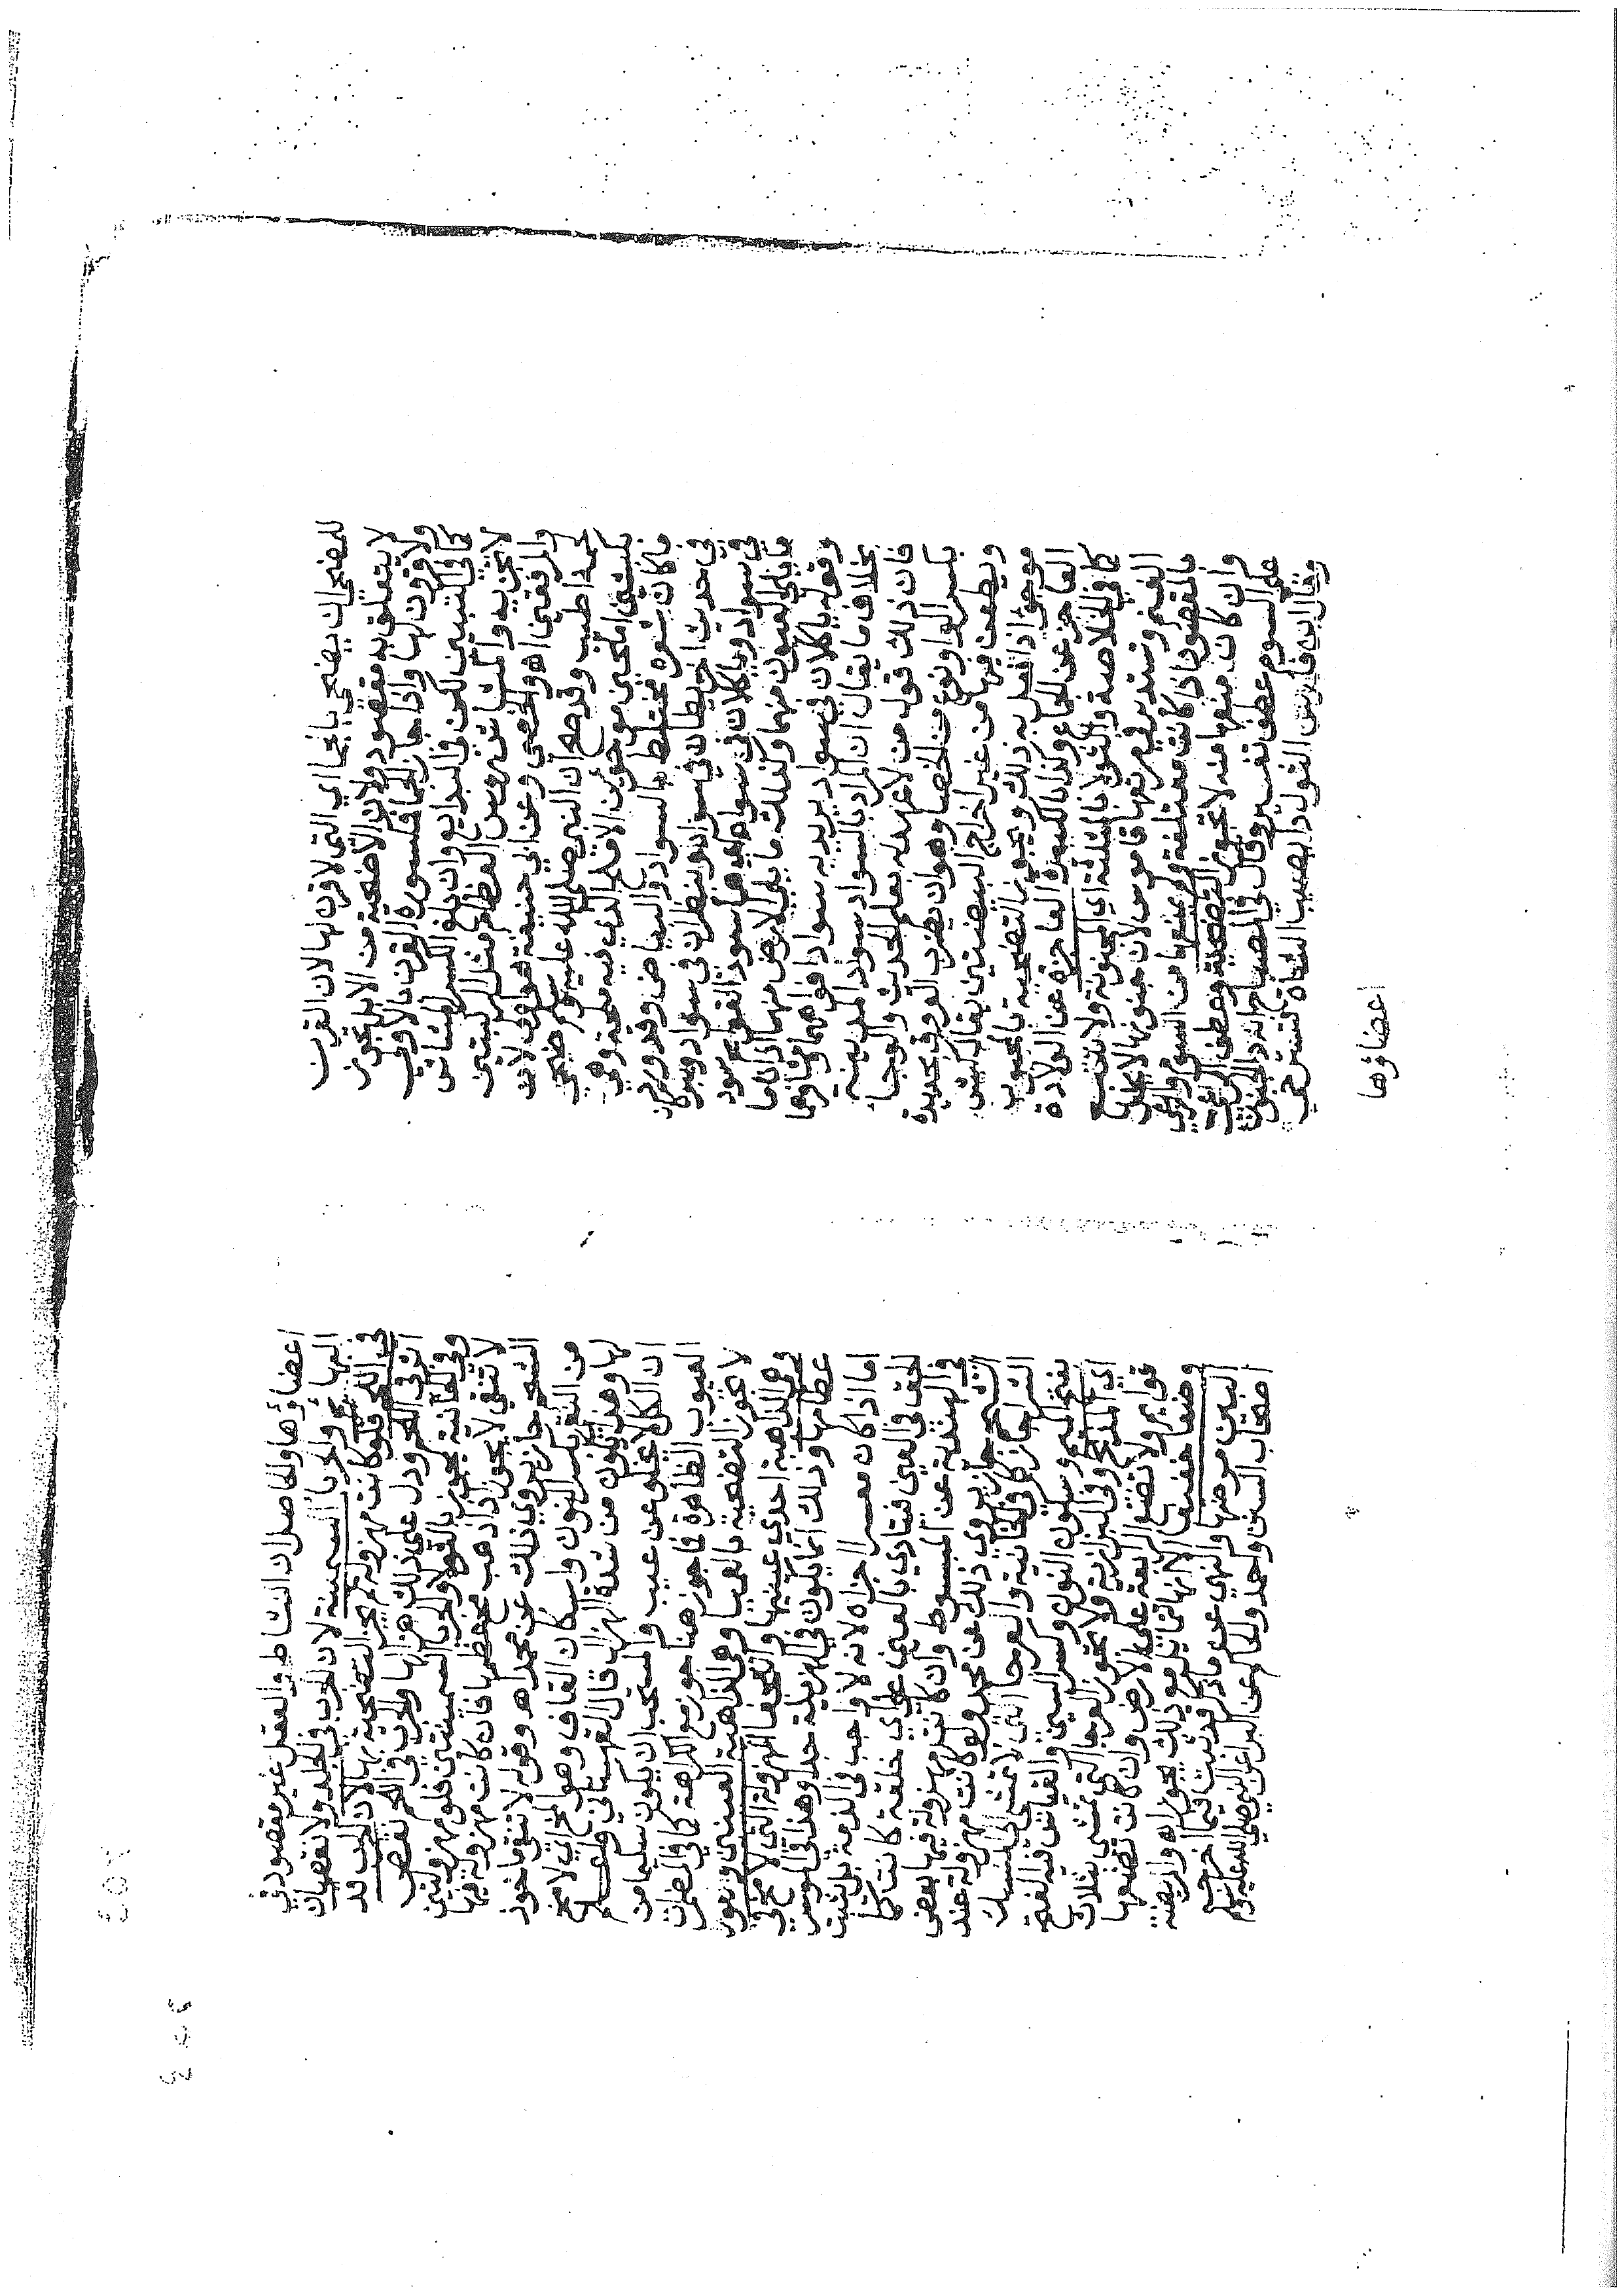 للمضحي ان يضحي بالجما اي التي لا قرن لها لان القرن
لا يتعلق به مقصود ولان الاضحية من الابل يجوز
ولا قرون لها واذا جاز الجما فمكسورة القرن بالاولى
كما في التبيين لكن في البدايع وان بلغ الكسر المشاش
لا يجزيه والمشاش روس العظام مثل الركبتين
والمرفقين اهـ والخصي وعن ابي حنيفة هو اولى لان
لحمه اطيب وقد صح ان النبي صلى الله عليه وسلم ضحى
بكبشين املحين موجوئين الاملح الذي فيه ملحة وهي
ما كان شعره مختلط بالسواد والبياض وقد ورد
في حديث اخر يطان في سواد وينظران في سواد ويبركان
في سواد وياكلان في سواد هو هنا سود القوايم سود
ما يلي العيون منهما وكذلك ما يلي الارض منهما اذا ناما
وقوله ياكلان في سواد يريد به سواد افواههما ومشافرهما
بخلاف ما يقال ان المراد بالسواد سواد المدينة
فان ذلك قول من لا عهد له بعلم الحديث والوجا
بكسر الواو نوع من الخصا وهو ان يضرب العروق بحديدة
ويطعن فيها من غير اخراج البيضتين يقال كبش
موجؤ اذا فعل به ذلك ويجوز التضحية بالمجبوب
العاجز عن الجماع وكذا بالكبيرة العاجزة عن الولادة
كما في الخلاصة والثولا بالمثلثة اي المجنونة ولا تتبع
الغنم وتستدير في مرتعها قاموس لان جنونها لا يخل
بالمقصود اذا كانت معتلفة ولم يمنعها من السوم والرعي
وان كان يمنعها منه لا تجوز التضحية وعطف الرعي
على السوم عطف تفسير وقال في المصباح انه دا الجنون
وقال ابن فارس الثول دا يصيب الشاة تسترخي
اعضاؤها
اعضاؤها والحاصل ان النشاط والعقل غير مقصود في
البهايم والجربا السمينة لان الجرب في الجلد ولا نقصان
في اللحم فلو كانت مهزولة لم تجز التضحية بها لان الجرب قد
اثر في اللحم ودل على ذلك هزالها والجرب في اللحم نقص
وفي الخانية تجوز بالثولا والجربا السمينتين فلو مهزولتين
لا تنقي لا يجوز اذا ذهب مخ عظمها فان كانت مهزولة فيها
الشحم جاز يروي ذلك عن محمد اهـ وقوله لا تنقي ماخوذ
من النقي بكسر النون واسكان القاف وهو المخ اي لا مخ
لها وهذا يكون من شدة الهزال قال القهستاني واعلم
ان الكل لا يخلو عن عيب والمستحب ان يكون سليما من
العيوب الظاهرة فما جوز هنا جوز مع الكراهة كما في المضمرات
لا تجوز التضحية بالعميا وهي الذاهبة العينين والعورا
وهي الذاهبة احدى عينيها والعجفا المهزولة التي لا مخ في
عظامها وذلك انما يكون في الهزيلة جدا وهذا في الموسر
اما اذا كان معسرا اجزاه لانه لا واجب في الذمة بل ثبت
الحق في العين فتادي بالعين على اي خلقة كانت كما
في الهندية عن المبسوط وان كانت مهزولة فيها بعض
الشحم جاز يروي ذلك عن محمد ولو كانت مهزولة عند
الشرا جاز كما في الخانية والعرجا التي لا تمشي الى المنسك
بفتح الميم وسكون النون وكسر السين والقياس فيه الفتح
اي المذبح وفي البزازية ولا تجوز العرجا التي تمشي بثلاث
قوايم ولا تضع الرابعة على الارض وان كانت تضعها
وضعا خفيفا الا انها تتمايل مع ذلك يجوز اهـ والمريضة
البين مرضها والنهي عن ما ذكر قد ثبت فيما اخرجه
اصحاب السنن واحمد والحاكم عن البرا عن النبي صلى الله عليه وسلم